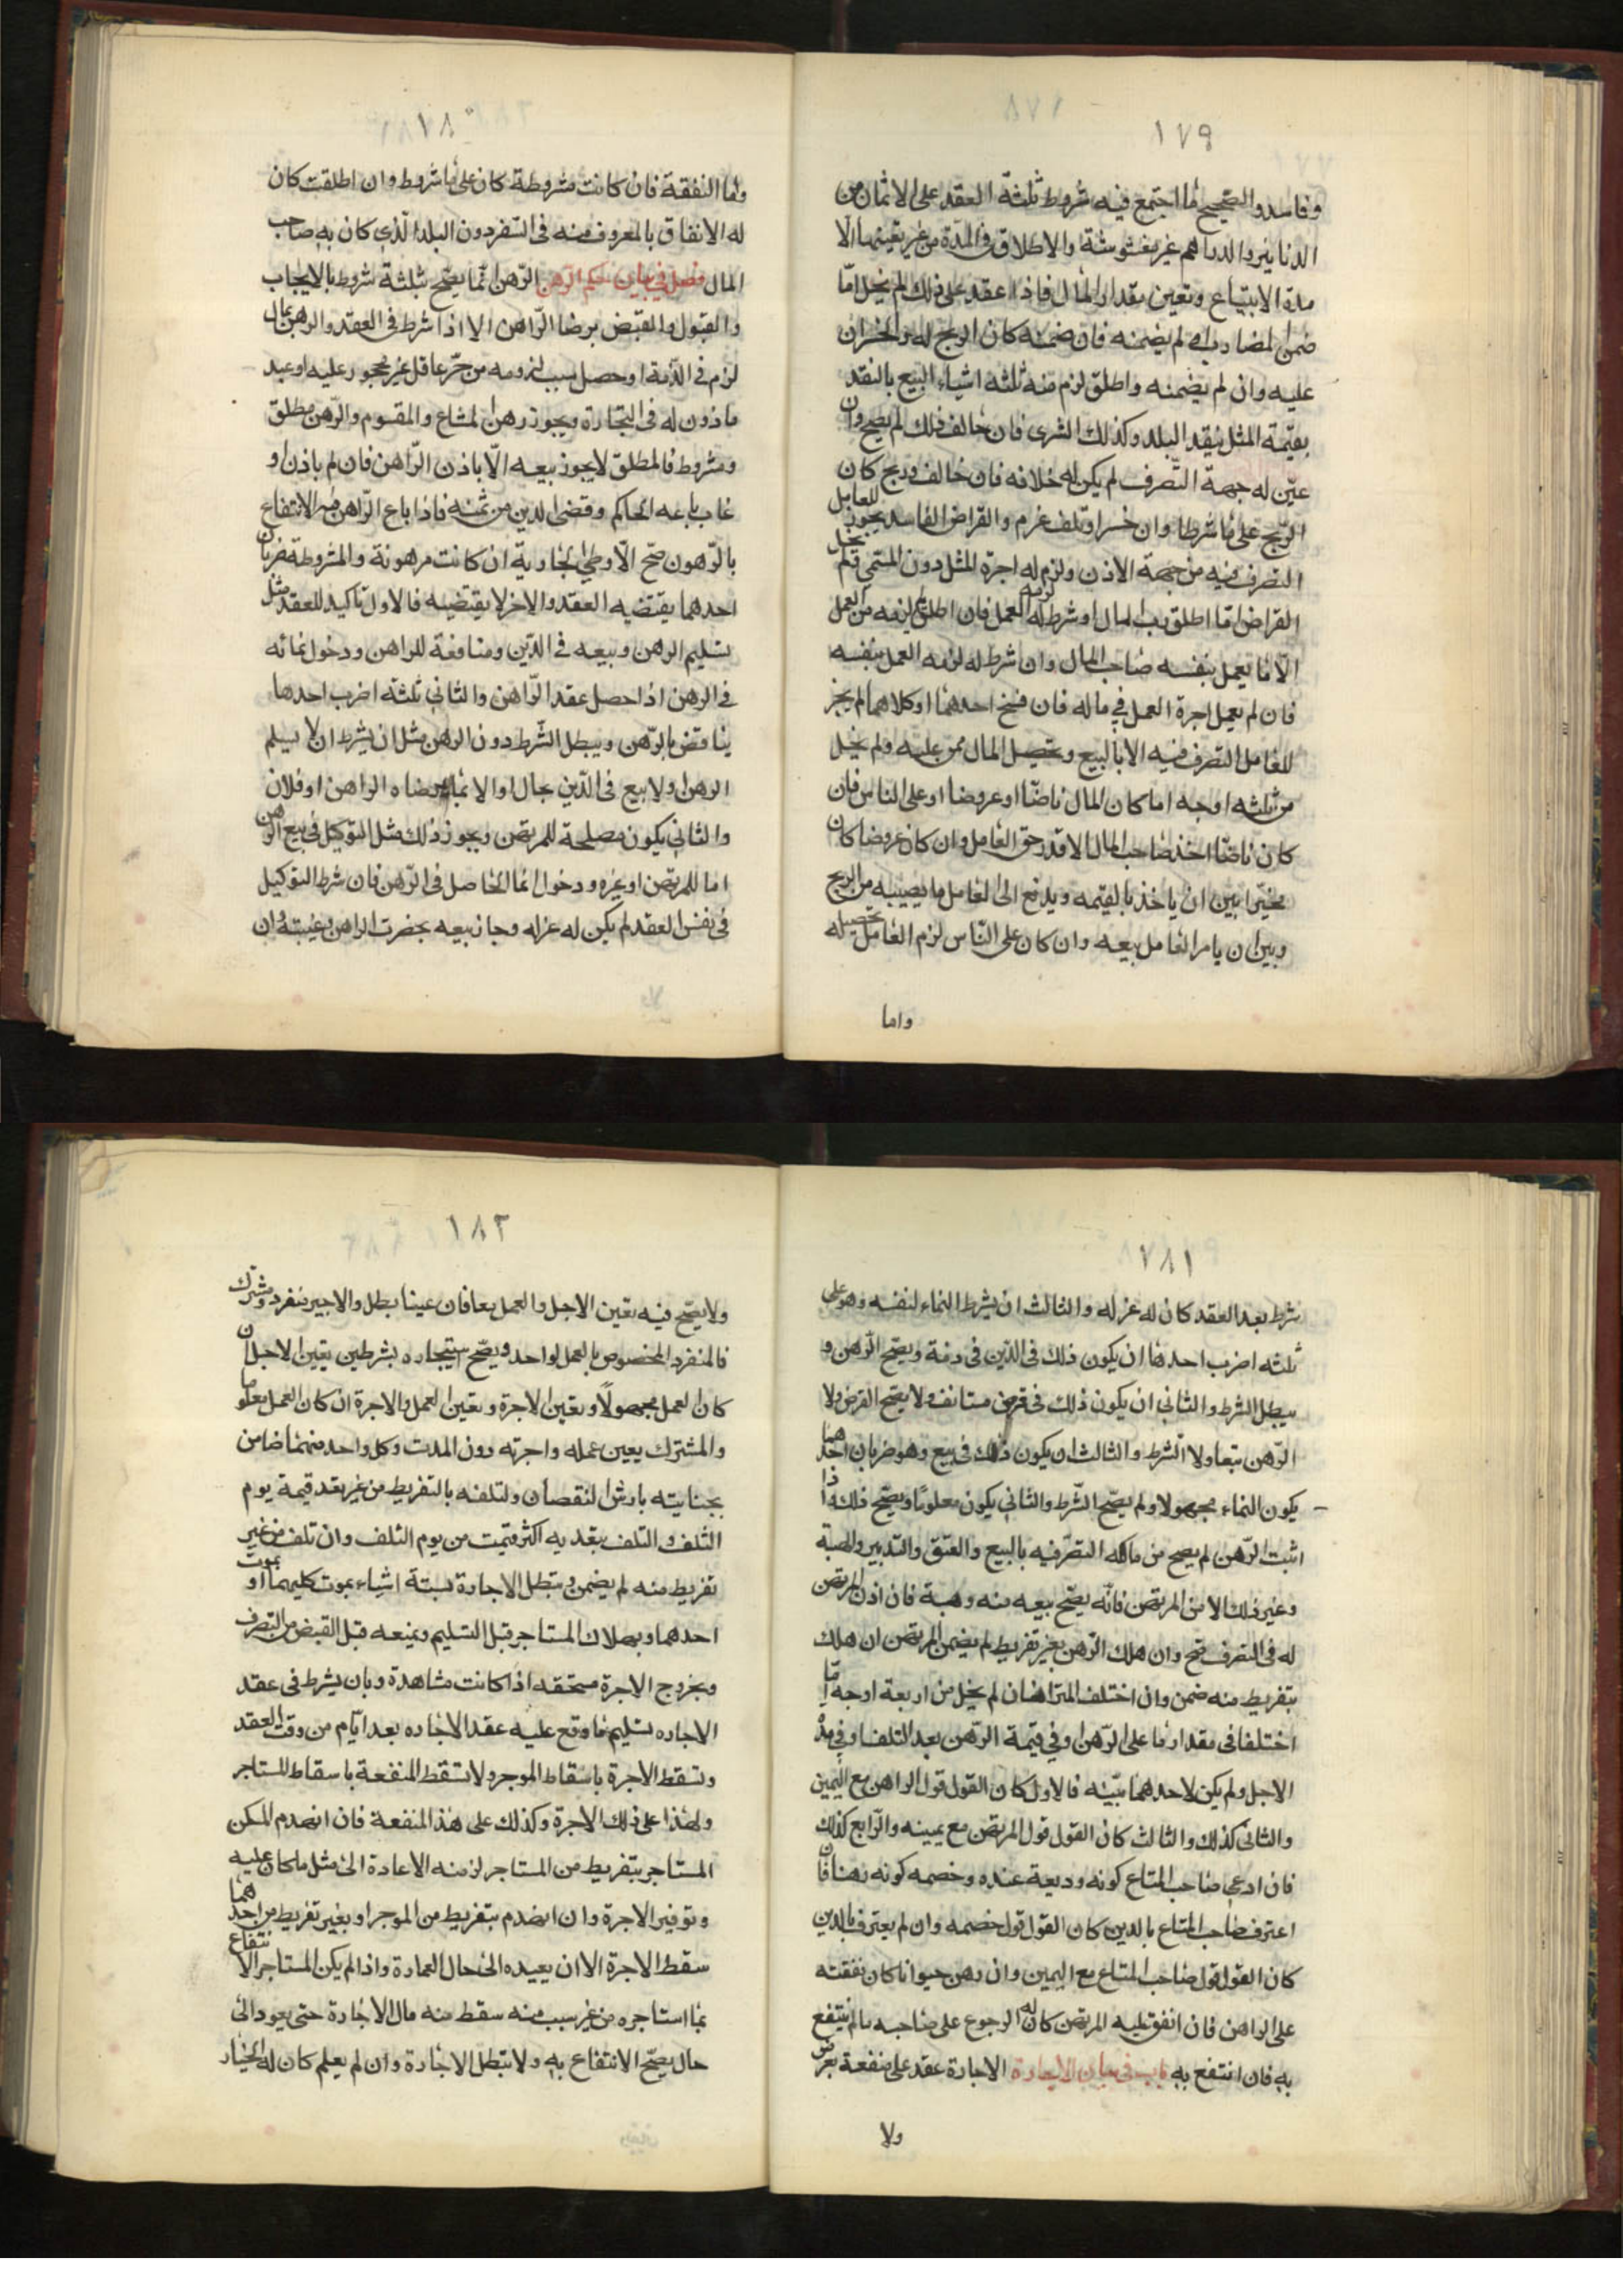 ١٧٩
وفاسد والصحيح ما اجتمع فيه شروط ثلثة العقد على الاثمان من
الدنانير والدراهم غير مغشوشة والاطلاق في المدة من غير تعينها الا
مدة الابتياع وتعين مقدار المال فاذا عقد على ذلك لم يخل اما
ضمن المضارب او لم يضمنه فان ضمنه كان الربح له والخسران
عليه وان لم يضمنه واطلق لزم منه ثلثه اشياء البيع بالنقد
بقيمة المثل بنقد البلد وكذلك الشرى فان خالف ذلك لم يصح وان
عين له جهة التصرف لم يكن له خلافه فان خالف وربح كان
الربح على ما شرطا وان خسر او تلف غرم والقراض الفاسد يجوز للعامل
التصرف فيه من جهة الاذن ولزم له اجرة المثل دون المسمى ولم يخل
القراض اما اطلق رب المال او شرط له العمل فان اطلق لم يلزمه من العمل
الا ما يعمل بنفسه صاحب المال وان شرط له لزمه العمل بنفسه
فان لم يعمل اجرة العمل في ماله فان فسخ احدهما او كلاهما لم يجز
للعامل التصرف فيه الا بالبيع وتحصيل المال ممن عليه ولم يخل
من ثلثه اوجه اما كان المال ناضا او عروضا او على الناس فان
كان ناضا اخذ صاحب المال الا قدر حق العامل وان كان عروضا كان
مخيرا بين ان ياخذ بالقيمه ويدفع الى العامل ما يصيبه من الربح
وبين ان يامر العامل ببيعه وان كان على الناس لزم العامل تحصيله
واما
١٨٠
واما النفقة فان كانت مشروطة كان على ما شروط وان اطلقت كان
له الانفاق بالمعروف منه في السفر دون البلد الذي كان به صاحب
المال فصل في بيان حكم الرهن الرهن انما يصح بثلثة شروط بالايجاب
والقبول والقبض برضا الراهن الا اذا شرط في العقد والرهن بمال
لزم في الذمة او حصل سبب لزومه من حر عاقل غير محجور عليه او عبد
ماذون له في التجارة ويجوز رهن المشاع والمقسوم والرهن مطلق
ومشروط فالمطلق لا يجوز بيعه الا باذن الراهن فان لم ياذن او
غاب باعه الحاكم وقضى الدين من ثمنه فاذا باع الراهن الانتفاع
بالرهون صح الا وطي الجارية ان كانت مرهونة والمشروطة ضربان
احدهما يقتضيه العقد والاخر لا يقتضيه فالاول تاكيد للعقد مثل
تسليم الرهن وبيعه في الدين ومنافعة للراهن ودخول نمائه
في الرهن اذا حصل عقد الراهن والثاني ثلثة اضرب احدها
يناقض بالرهن ويبطل الشرط دون الرهن مثل ان يشرط ان لا يسلم
الرهن او لا بيع في الدين بحال او الا بما رضاه الراهن او فلان
والثاني يكون مصلحة للمرتهن ويجوز ذلك مثل التوكيل في بيع الرهن
اما للمرتهن او غيره ودخول النماء الحاصل في الرهن فان شرط التوكيل
في نفس العقد لم يكن له عزله وجاز بيعه بحضرت الراهن وغيبته وان
١٨١
شرط بعد العقد كان له عزله والثالث ان يشرط النماء لنفسه وهو على
ثلثه اضرب احدها ان يكون ذلك في الدين في ذمة ويصح الرهن و
يبطل الشرط والثاني ان يكون ذلك في قرض مستانف ولا يصح القرض ولا
الرهن تبعا ولا الشرط والثالث ان يكون ذلك في بيع وهو ضربان احدهما
يكون النماء مجهولا ولم يصح الشرط والثاني يكون معلوما ويصح ذلك اذا
اثبت الرهن لم يصح من مالكه التصرف فيه بالبيع والعتق والتدبير والهبة
وغير ذلك الا من المرتهن فانه يصح بيعه منه وهبة فان اذن المرتهن
له في التصرف صح وان هلك الرهن بغير تفريط لم يضمن المرتهن ان هلك
بتفريط منه ضمن وان اختلف المتراهنان لم يخل من اربعة اوجه اما
اختلفا في مقدار ما على الرهن او في قيمة الرهن بعد التلف او في مدة
الاجل ولم يكن لاحدهما بينه فالاول كان القول قول الراهن مع اليمين
والثاني كذلك والثالث كان القول قول المرتهن مع يمينه والرابع كذلك
فان ادعى صاحب المتاع كونه وديعة عنده وخصمه كونه رهنا فان
اعترف صاحب المتاع بالدين كان القول قول خصمه وان لم يعترف بالدين
كان القول قول صاحب المتاع مع اليمين وان رهن حيوانا كان نفقته
على الراهن فان انفق عليه المرتهن كان له الرجوع على صاحبه مالم ينتفع
به فان انتفع به باب في بيان الاجارة الاجارة عقد على منفعة بعوض
ولا
١٨٢
ولا يصح فيه تعين الاجل والعمل معا فان عينا بطل والاجير منفرد ومشترك
فالمنفرد المخصوص بالعمل لواحد ويصح استيجاره بشرطين تعين الاجل ان
كان العمل مجهولا وتعين الاجرة وتعين العمل والاجرة ان كان العمل معلوما
والمشترك يعين عمله واجرته دون المدت وكل واحد منهما ضامن
بجنايته بارش النقصان ولتلفه بالتفريط من غير تعد قيمة يوم
التلف والتلف بتعديه اكثر قيمت من يوم التلف وان تلف من غير
تفريط منه لم يضمن وتبطل الاجارة بستة اشياء بموت كليهما او بموت
احدهما وبهلاك المستاجر قبل التسليم وبمنعه قبل القبض من التصرف
وبخروج الاجرة مستحقه اذا كانت مشاهدة وبان يشرط في عقد
الاجاره تسليم ما وقع عليه عقد الاجاره بعد ايام من وقت العقد
وتسقط الاجرة باسقاط الموجر ولا تسقط المنفعة باسقاط المستاجر
ولهذا على ذلك الاجرة وكذلك على هذ المنفعة فان انهدم المسكن
المستاجر بتفريط من المستاجر لزمنه الاعادة الى مثل ما كان عليه
وتوفير الاجرة وان انهدم بتفريط من الموجر او بغير تفريط من احدهما
سقط الاجرة الا ان يعيده الى حال العمارة واذا لم يكن المستاجر الانتفاع
بما استاجره من غير سبب منه سقط منه مال الاجارة حتى يعود الى
حال يصح الانتفاع به ولا تبطل الاجارة وان لم يعلم كان له الخيار